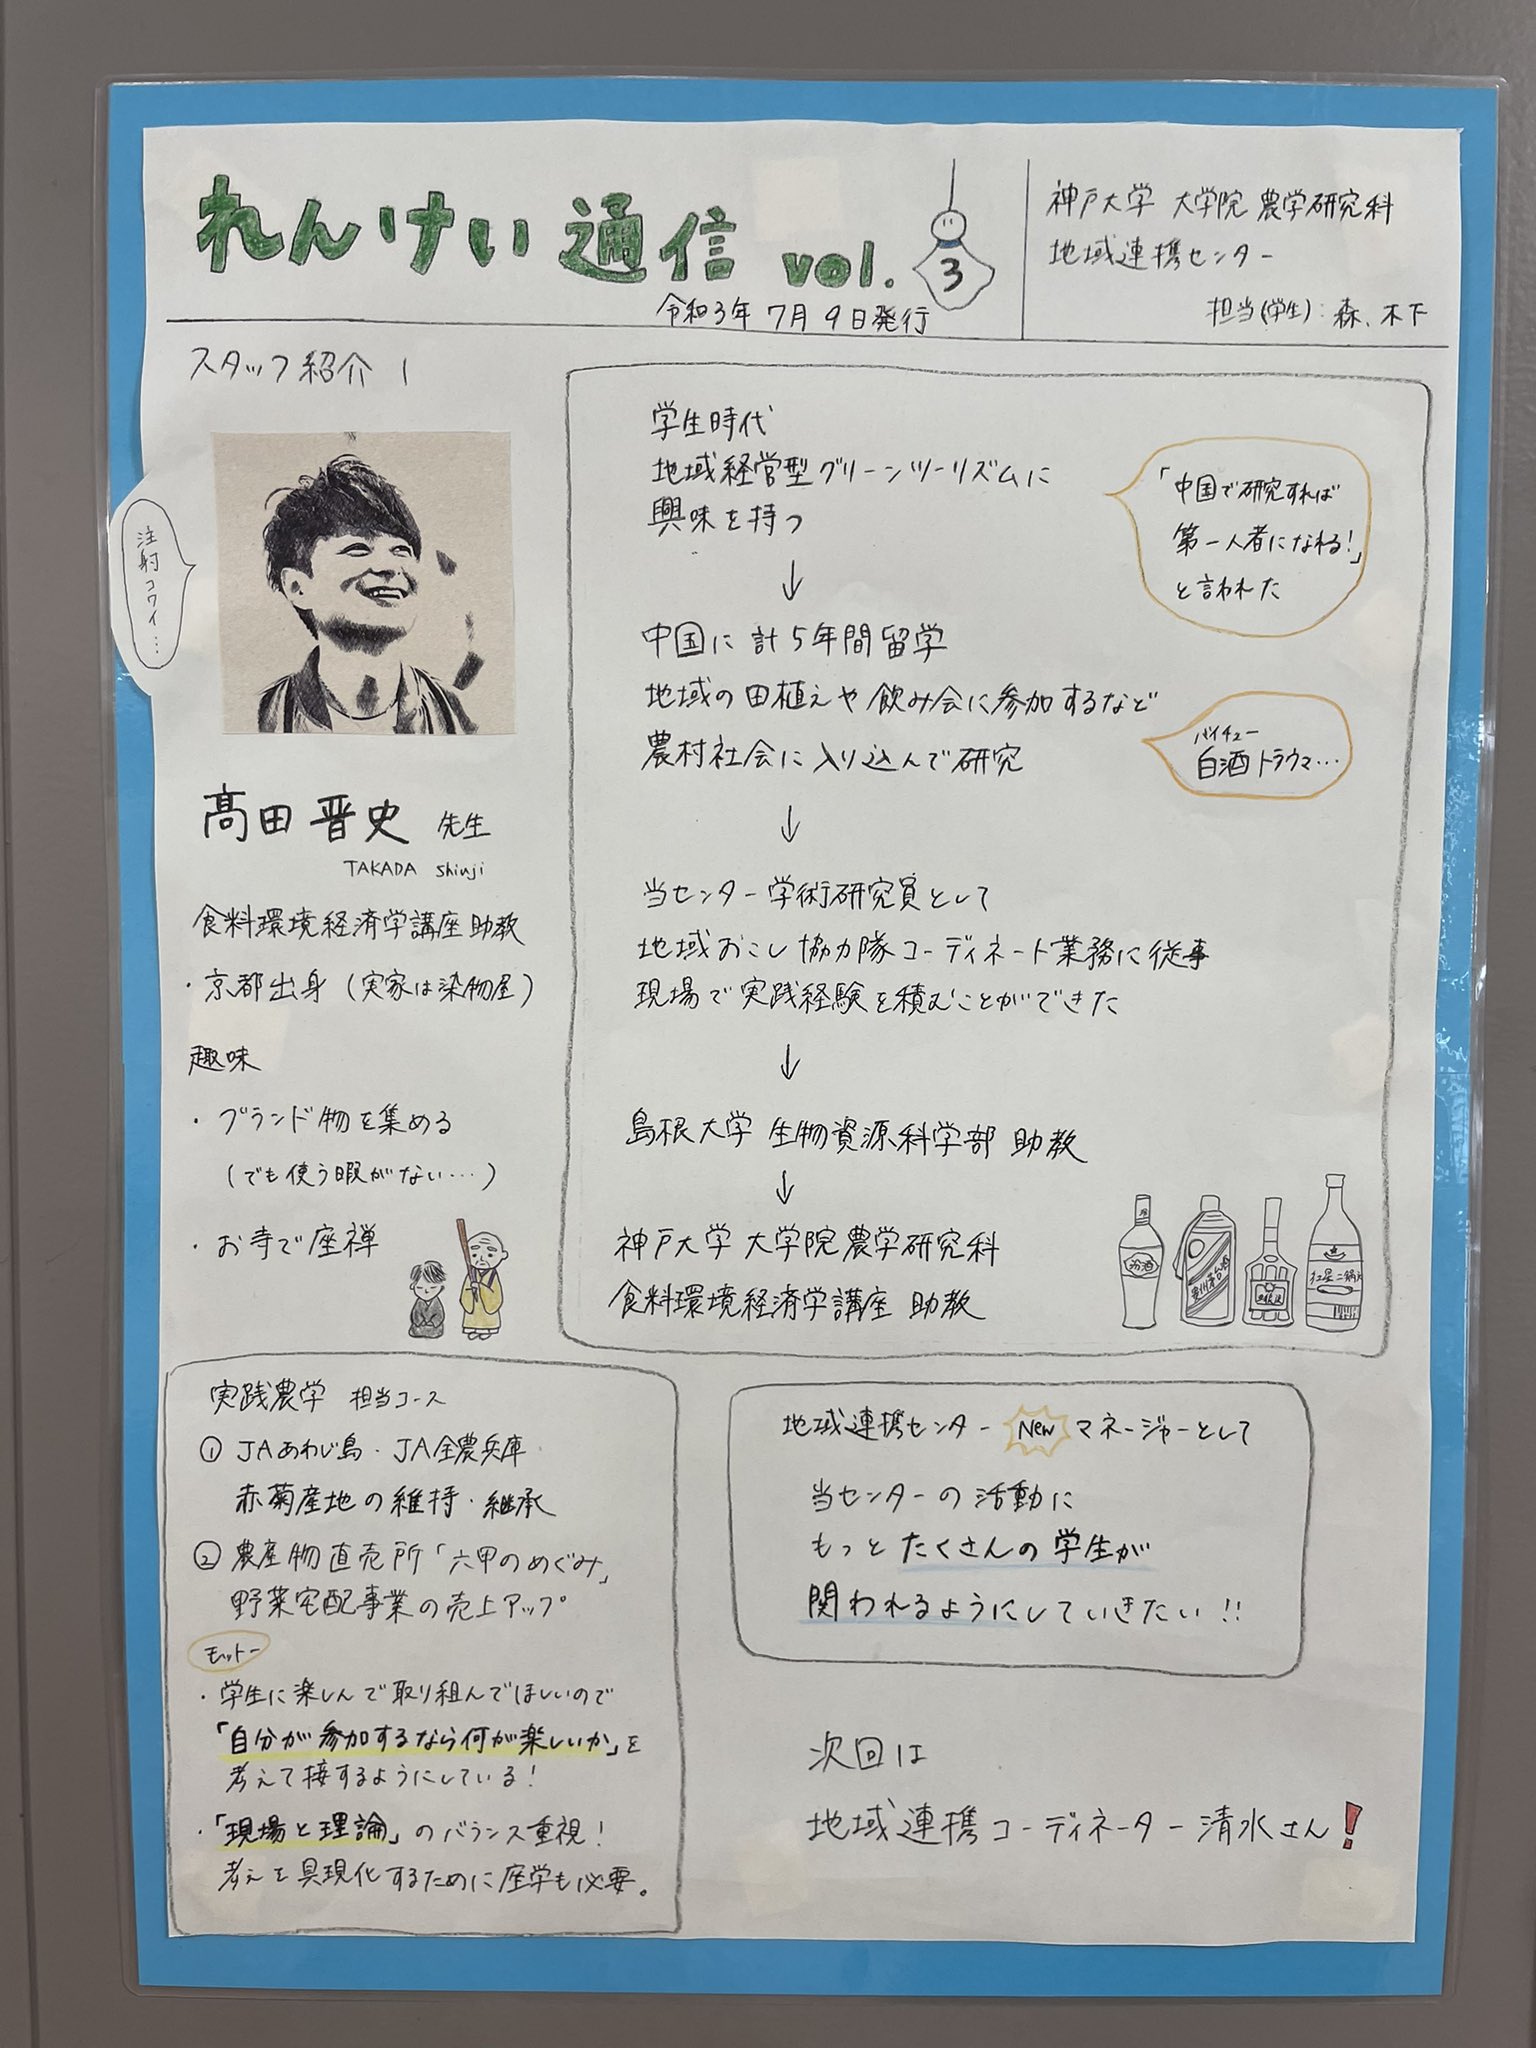 れんけい通信 vol. 3
令和3年 7月9日発行
神戸大学 大学院 農学研究科
地域連携センター
担当(学生): 森、木下
スタッフ紹介 1
注射コワイ…
髙田 晋史 先生
TAKADA shinji
食料環境経済学講座 助教
・京都出身 (実家は染物屋)
趣味
・ブランド物を集める
(でも使う暇がない…)
・お寺で座禅
学生時代
地域経営型グリーンツーリズムに
興味を持つ
「中国で研究すれば
第一人者になれる!」
と言われた
↓
中国に計5年間留学
地域の田植えや飲み会に参加するなど
農村社会に入り込んで研究
バイチュー
白酒トラウマ…
↓
当センター学術研究員として
地域おこし協力隊コーディネート業務に従事
現場で実践経験を積むことができた
↓
島根大学 生物資源科学部 助教
↓
神戸大学 大学院 農学研究科
食料環境経済学講座 助教
汾酒
貴州茅台酒
紅星二鍋
実践農学 担当コース
① JAあわじ島・JA全農兵庫
赤菊産地の維持・継承
② 農産物直売所「六甲のめぐみ」
野菜宅配事業の売上アップ
モットー
・学生に楽しんで取り組んでほしいので
「自分が参加するなら何が楽しいか」を
考えて接するようにしている!
・「現場と理論」のバランス重視!
考えを具現化するために座学も必要。
地域連携センター New マネージャーとして
当センターの活動に
もっとたくさんの学生が
関われるようにしていきたい!!
次回は
地域連携コーディネーター清水さん!